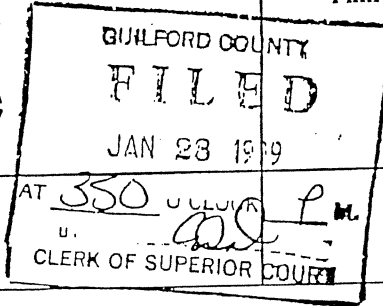 GUILFORD COUNTY
FILED
JAN 28
AT 350 O'CLOCK P M.
CLERK OF SUPERIOR COURT